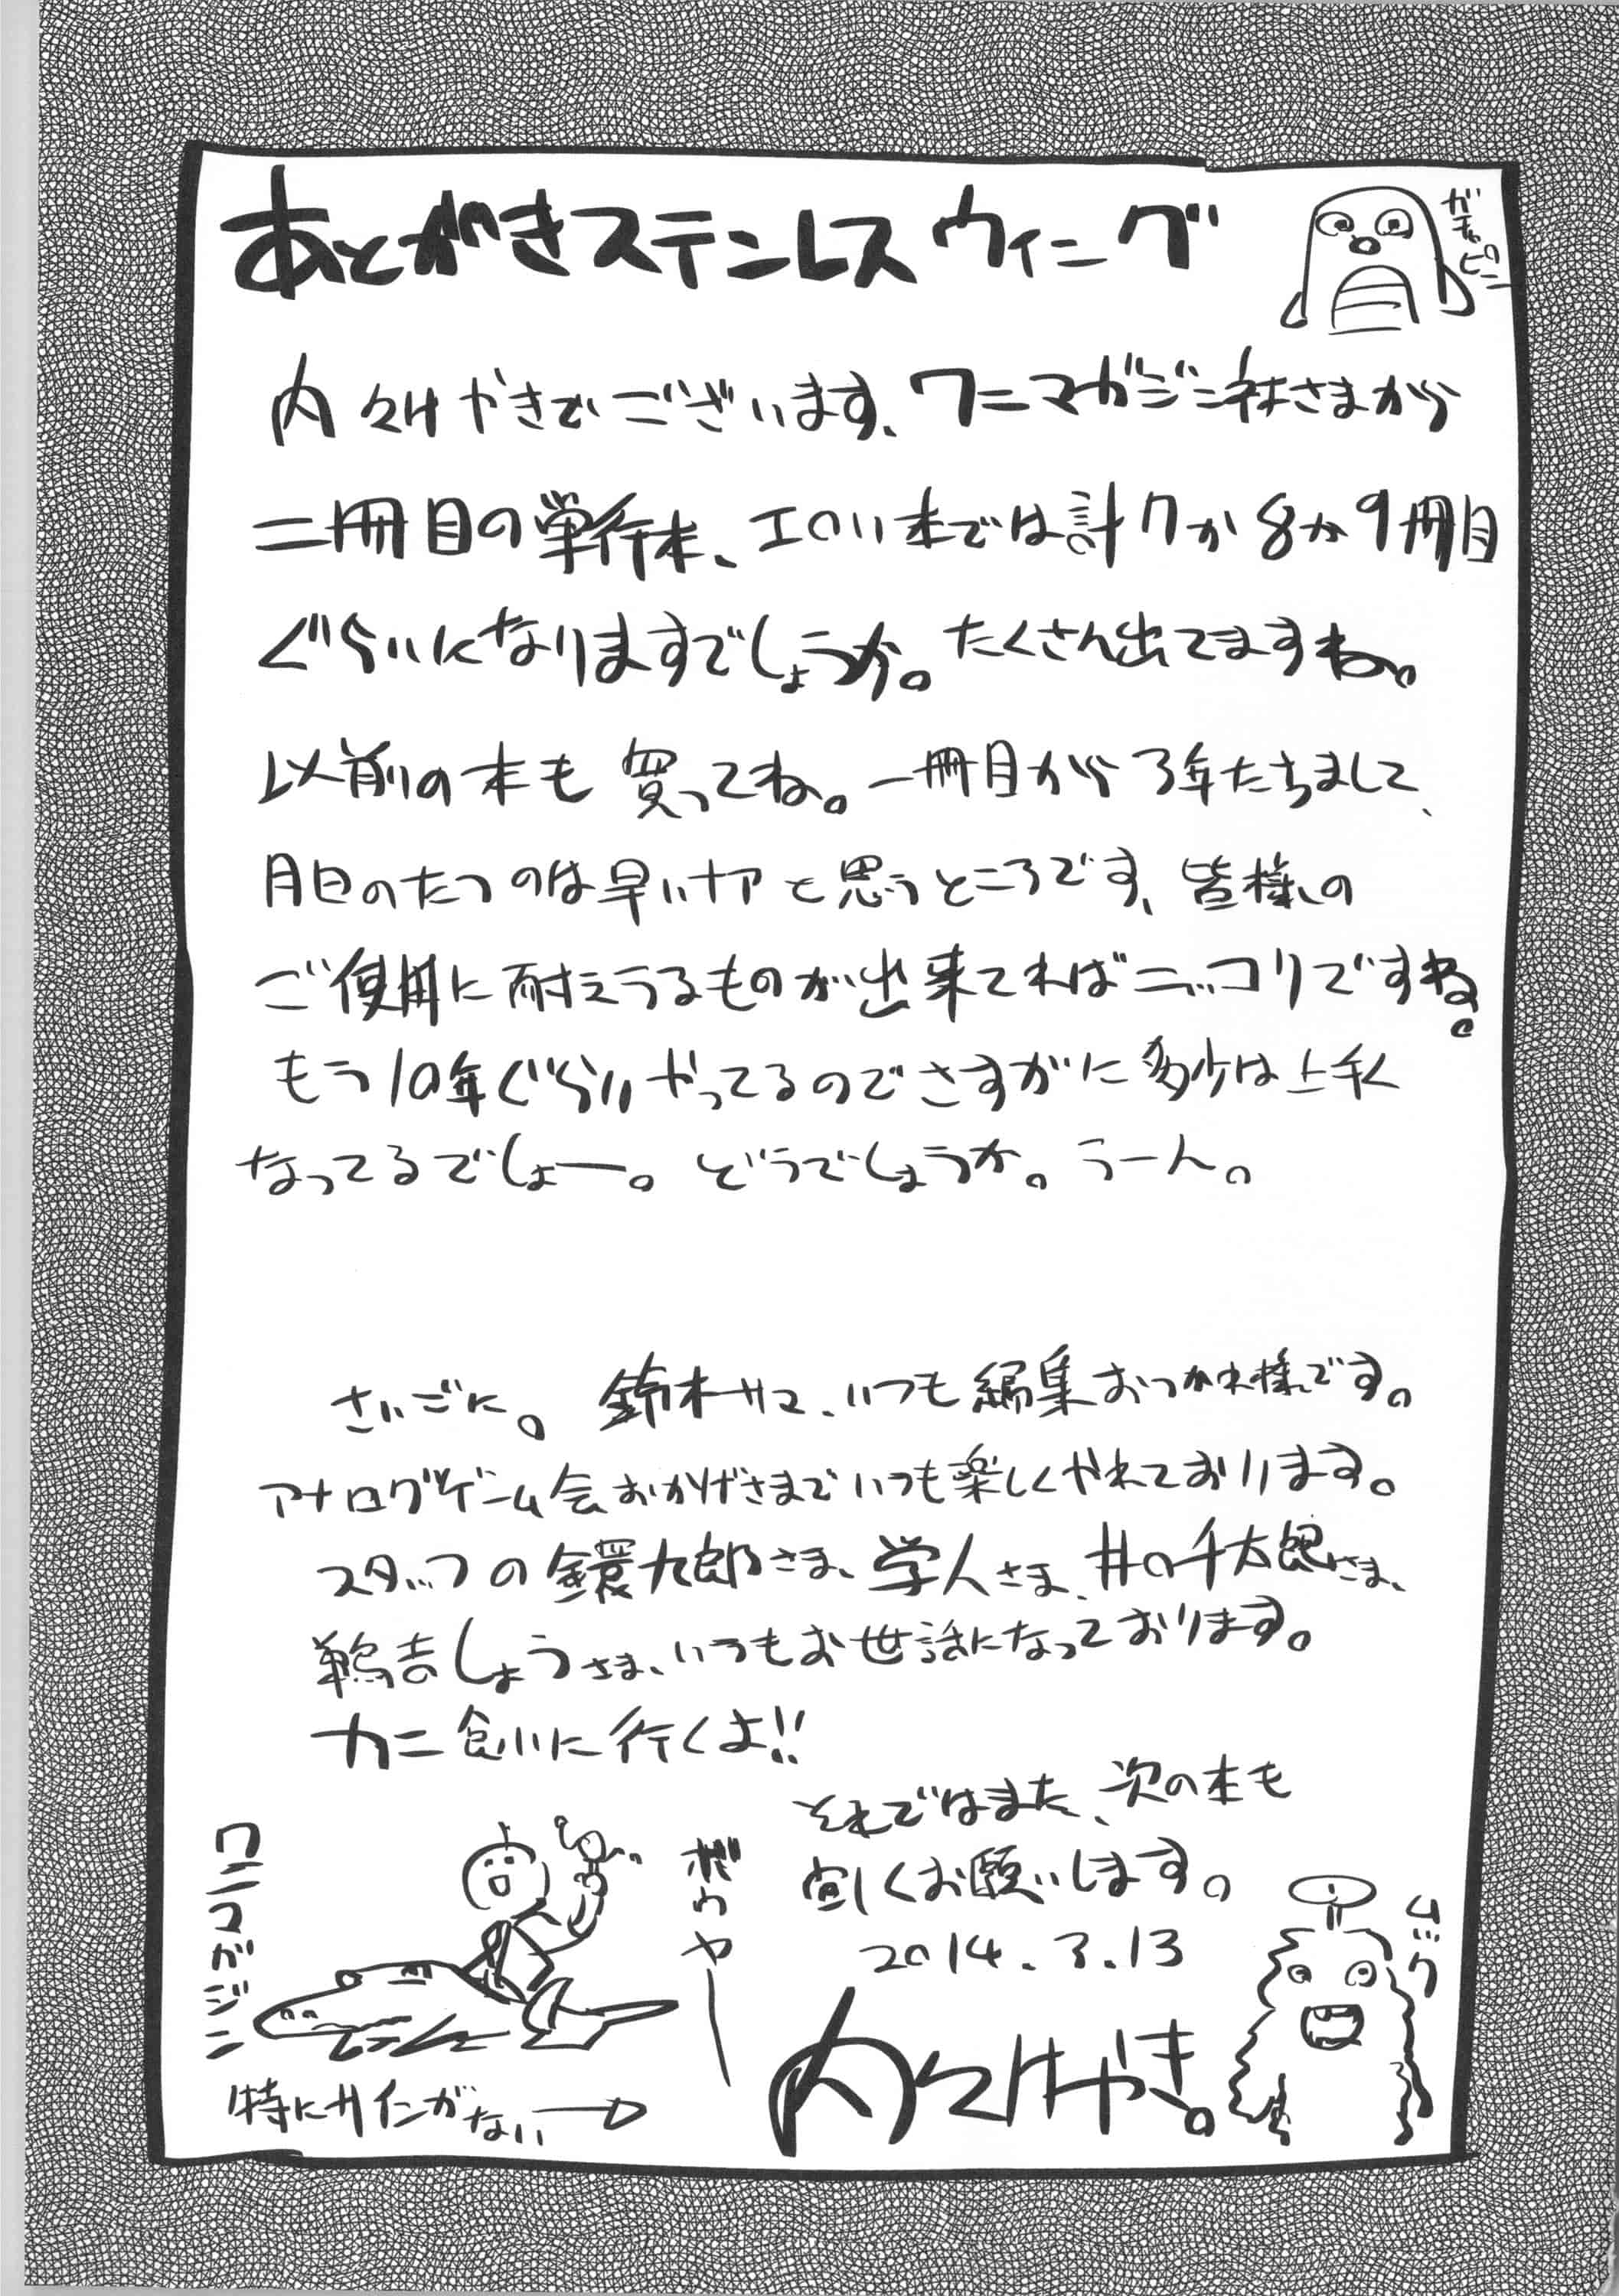 あとがきステンレスウィング
ガチャピン
内々けやきでございます、ワニマガジン社さまから
二冊目の単行本、エロい本では計7か8か9冊目
ぐらいになりますでしょうか。たくさん出てますね。
以前の本も買ってね。一冊目から3年たちまして、
月日のたつのは早いナアと思うところです、皆様の
ご使用に耐えうるものが出来てればニッコリですね。
もう10年ぐらいやってるのでさすがに多少は上手く
なってるでしょー。どうでしょうか。うーん。
さいごに。鈴木サマ、いつも編集おつかれ様です。
アナログゲーム会おかげさまでいつも楽しくやれております。
スタッフの鐶九郎さま、学人さま、井の千太郎さま、
鵜吉しょうさま、いつもお世話になっております。
カニ食いに行くよ!!
それではまた、次の本も
宜しくお願いします。
2014.3.13
内々けやき。
ワニマガジン
ボウヤー
ムック
特にサインがない→